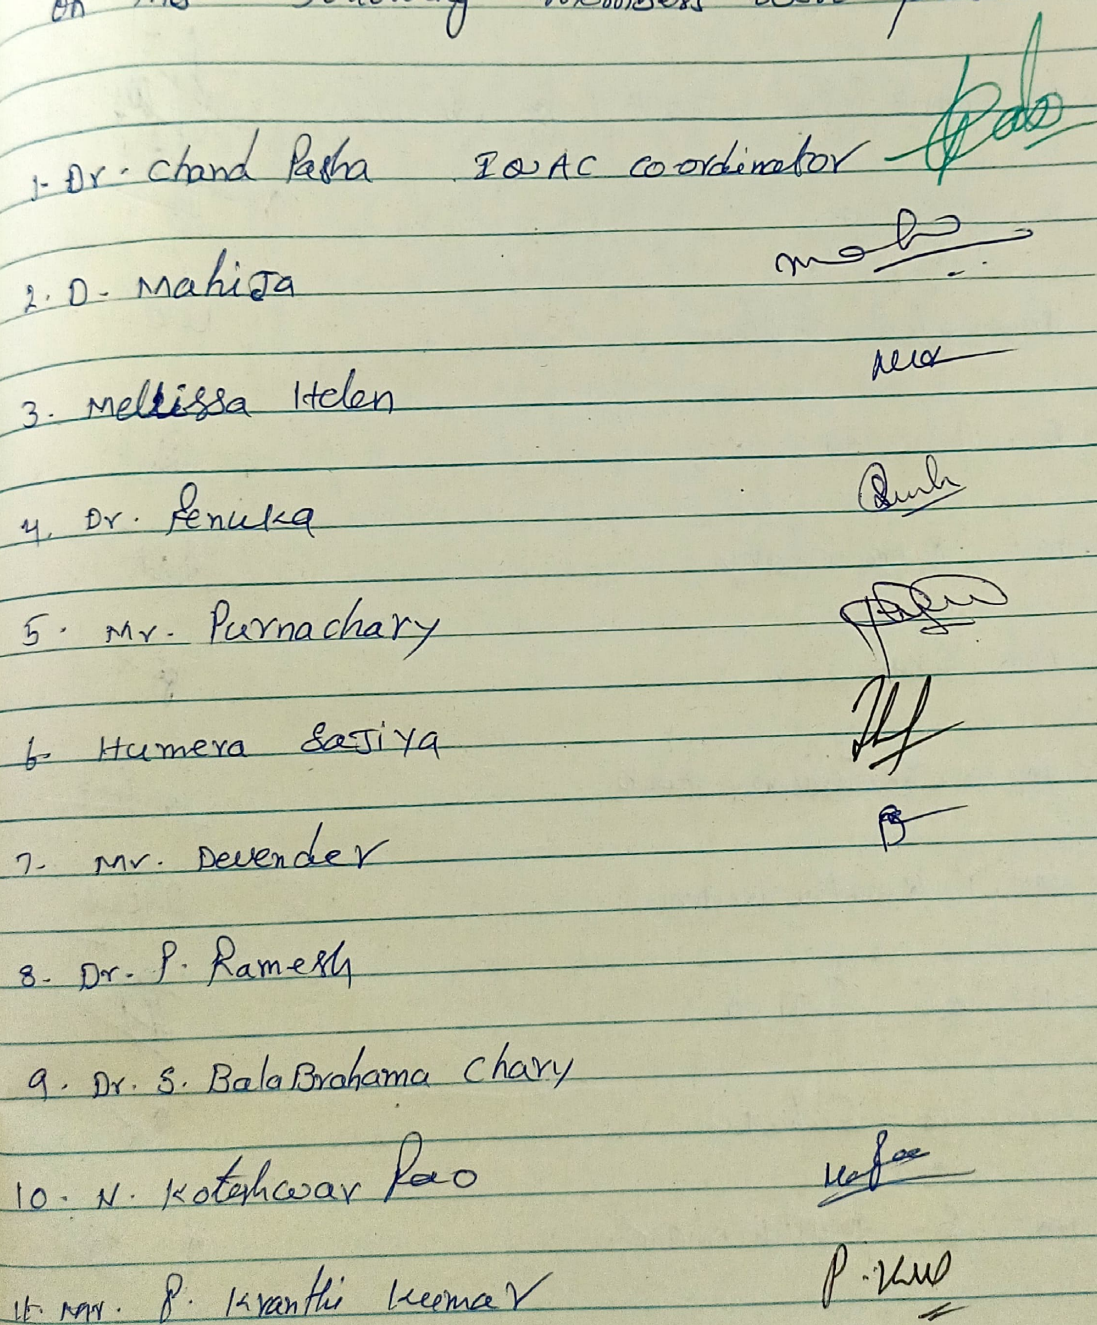 on the following members were
1. Dr. Chand Pasha IQAC Co-ordinator
2. D. Mahija
3. Mellissa Helen
4. Dr. Renuka
5. Mr. Purnachary
6. Humera Sajiya
7. Mr. Devender
8. Dr. P. Ramesh
9. Dr. S. Bala Brahama Chary
10. N. Koteshwar Rao
11. Mr. P. Kranthi Kumar P. Ku